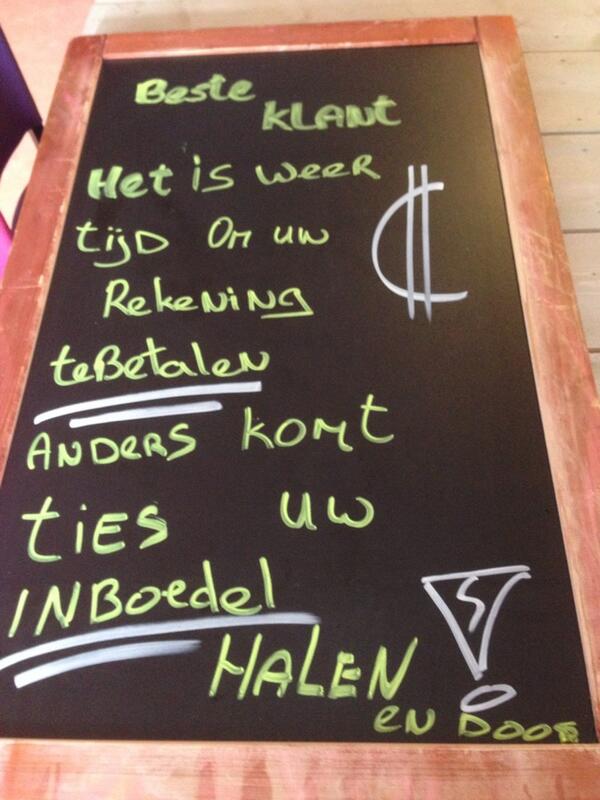 Beste
KLANT
Het is weer
tijD Om uw
Rekening
teBetalen
ANDERS komt
tiES uw
INBoedel
HALEN
en DOOS